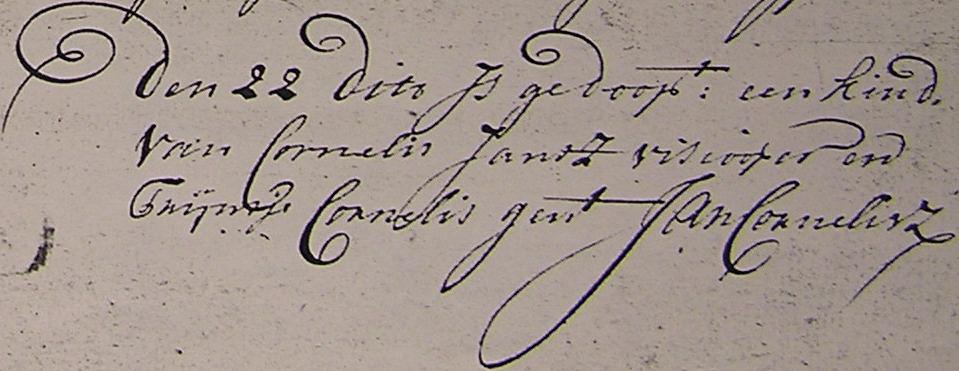 Den 22 dito Is gedoopt: een kind.
van Cornelis Jansz viscooper en
Trijntje Cornelis gent Jan Cornelisz